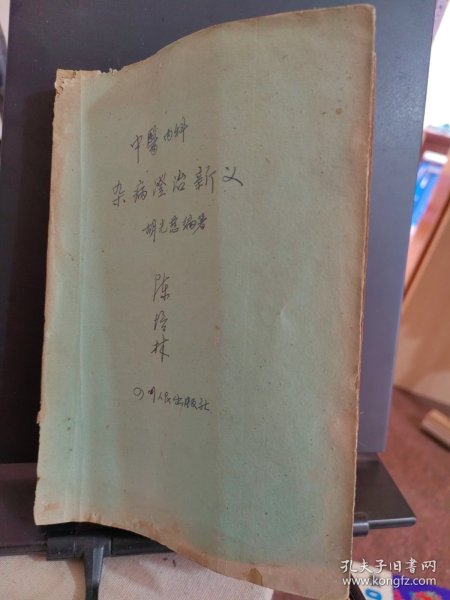 中醫内科
杂病澄治新义
胡光慈编著
陈
培
林
四川人民出版社
孔夫子旧书网
www.kongfz.com